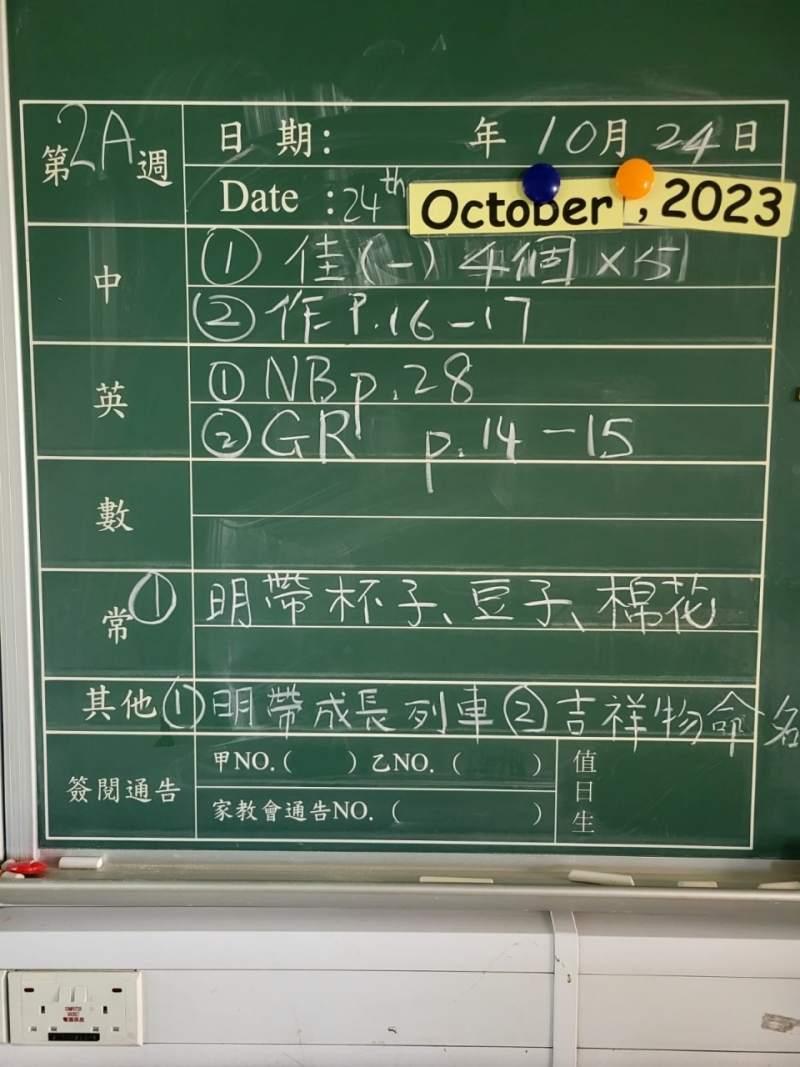 第2A週
日 期: 年 10月 24日
Date :24th October , 2023
中
① 佳(一) 4個×5
② 作P.16-17
英
① NB p.28
② GR p.14-15
數
常 ① 明帶杯子、豆子、棉花
其他 ① 明帶成長列車 ② 吉祥物命名
簽閱通告
甲NO.( ) 乙NO. ( )
家教會通告NO. ( )
值日生
COMPUTER
SOCKET